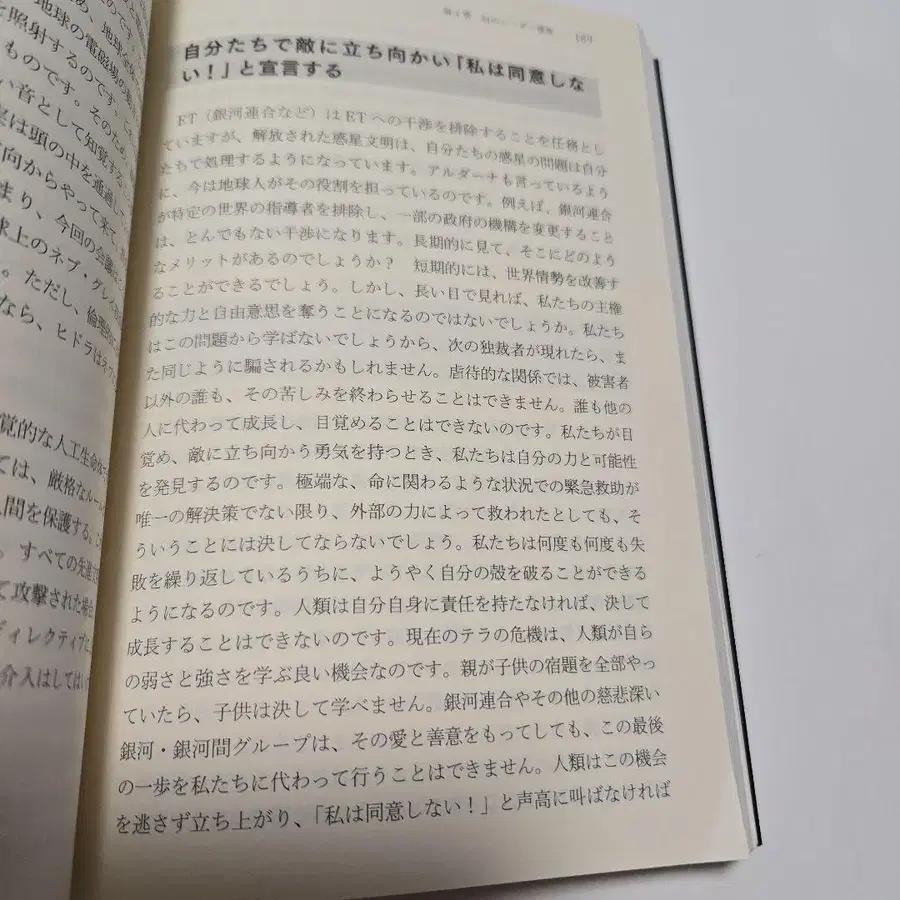 189
自分たちで敵に立ち向かい「私は同意しな
い！」と宣言する
ET（銀河連合など）はETへの干渉を排除することを任務とし
ていますが、解放された惑星文明は、自分たちの惑星の問題は自分
たちで処理するようになっています。アルダーナも言っているよう
に、今は地球人がその役割を担っているのです。例えば、銀河連合
が特定の世界の指導者を排除し、一部の政府の機構を変更すること
は、とんでもない干渉になります。長期的に見て、そこにどのよう
なメリットがあるのでしょうか？　短期的には、世界情勢を改善す
ることができるでしょう。しかし、長い目で見れば、私たちの主権
的な力と自由意思を奪うことになるのではないでしょうか。私たち
はこの問題から学ばないでしょうから、次の独裁者が現れたら、ま
た同じように騙されるかもしれません。虐待的な関係では、被害者
以外の誰も、その苦しみを終わらせることはできません。誰も他の
人に代わって成長し、目覚めることはできないのです。私たちが目
覚め、敵に立ち向かう勇気を持つとき、私たちは自分の力と可能性
を発見するのです。極端な、命に関わるような状況での緊急救助が
唯一の解決策でない限り、外部の力によって救われたとしても、そ
ういうことには決してならないでしょう。私たちは何度も何度も失
敗を繰り返しているうちに、ようやく自分の殻を破ることができる
ようになるのです。人類は自分自身に責任を持たなければ、決して
成長することはできないのです。現在のテラの危機は、人類が自ら
の弱さと強さを学ぶ良い機会なのです。親が子供の宿題を全部やっ
ていたら、子供は決して学べません。銀河連合やその他の慈悲深い
銀河・銀河間グループは、その愛と善意をもってしても、この最後
の一歩を私たちに代わって行うことはできません。人類はこの機会
を逃さず立ち上がり、「私は同意しない！」と声高に叫ばなければ